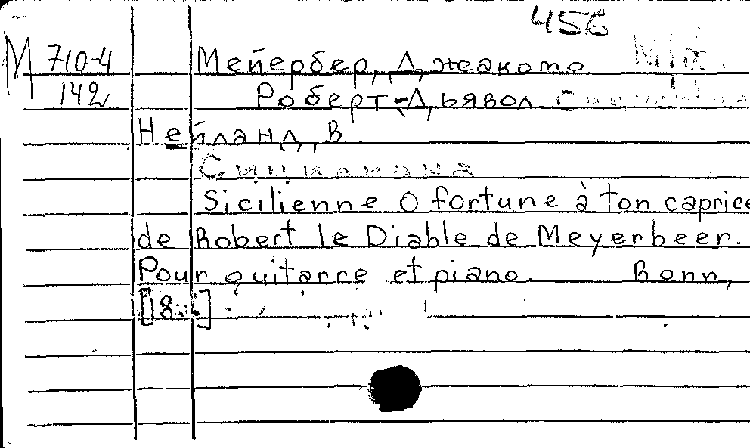 456
М 710-4
142
Мейербер, Джакомо
Роберт-Дьявол.
Нейланд, В.
Сицилиана
Sicilienne O fortune à ton caprice
de Robert le Diable de Meyerbeer.
Pour guitarre et piano. Bonn,
[18